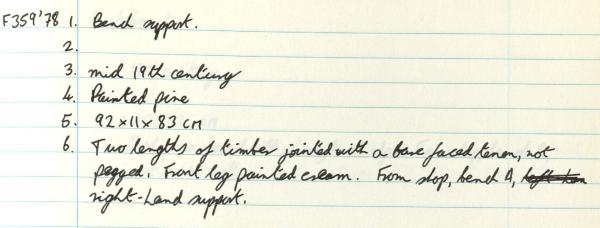 F359'78 1. Bench support.
2.
3. mid 19th century
4. Painted pine
5. 92 x 11 x 83 cm
6. Two lengths of timber jointed with a bare faced tenon, not
pegged. Front leg painted cream. From shop, bench A,
right-hand support.